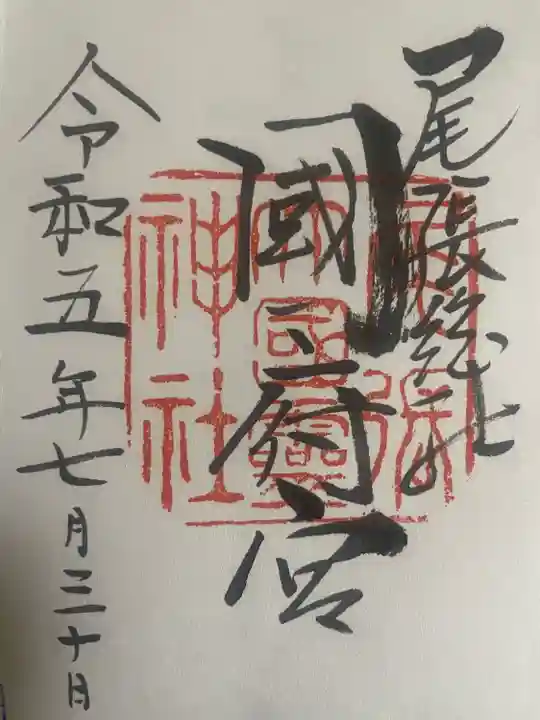 尾張総社
國府宮
令和五年七月三十日
尾張
大國霊
神社